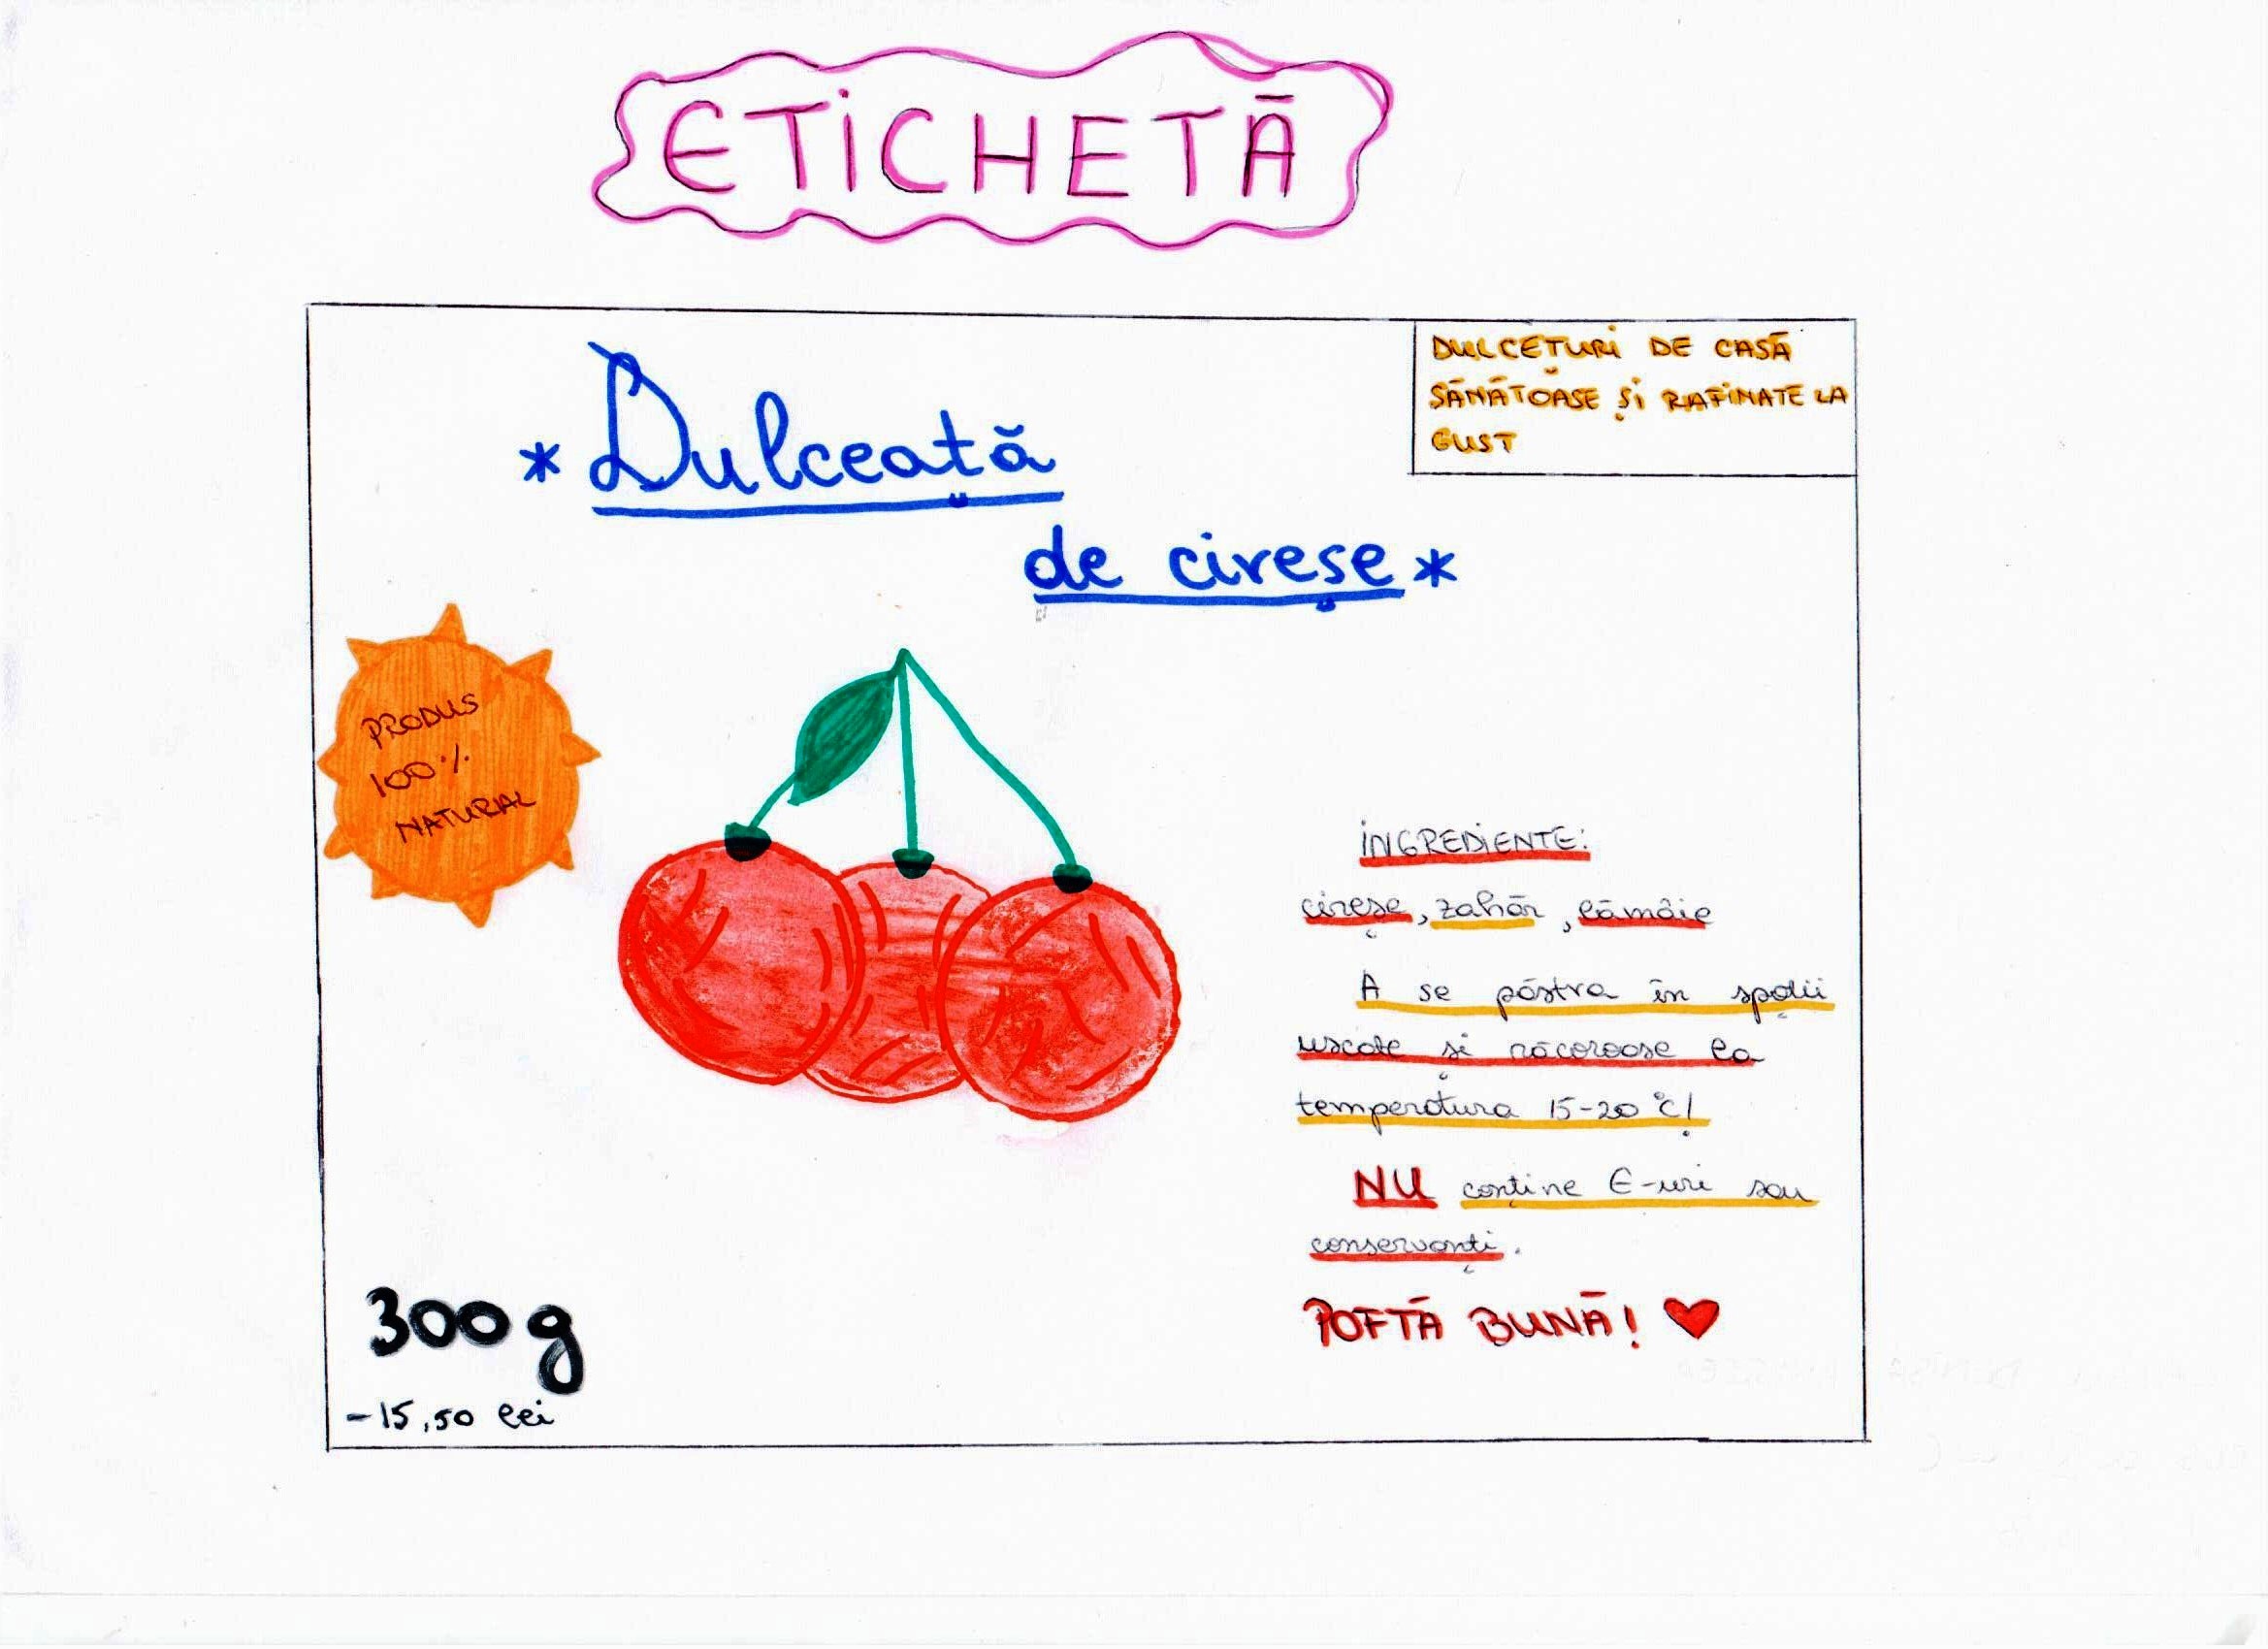 ETICHETĂ
DULCEȚURI DE CASĂ
SĂNĂTOASE ȘI RAFINATE LA
GUST
* Dulceață
de cireșe *
PRODUS
100%
NATURAL
INGREDIENTE:
cireșe, zahăr, lămâie
A se păstra în spații
uscate și răcoroase la
temperatura 15-20 °C!
NU conține E-uri sau
conservanți.
POFTĂ BUNĂ! ♥
300 g
-15,50 lei